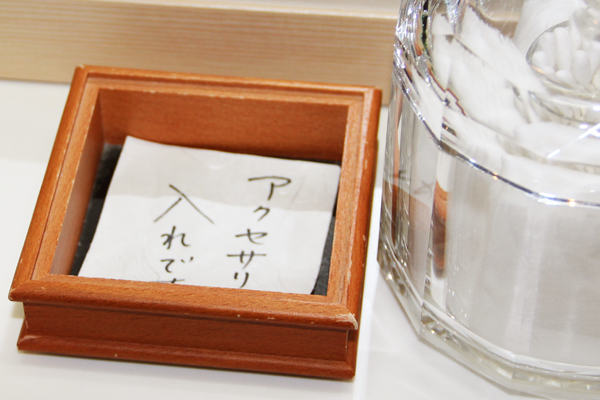 アクセサリ
入れで